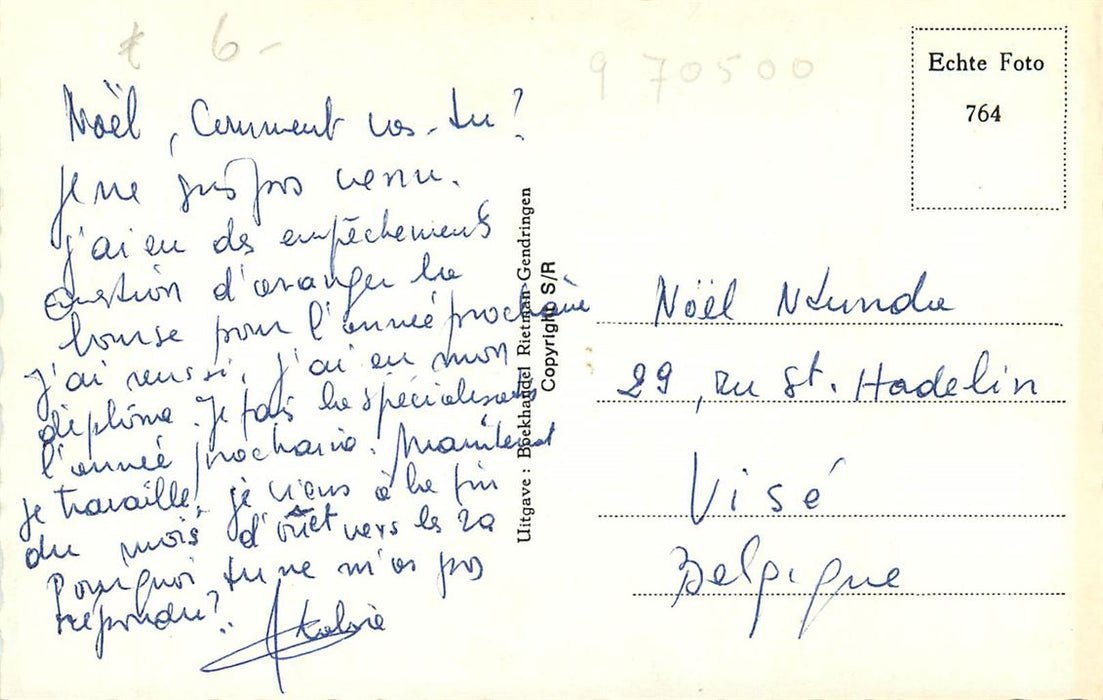 6-
9 70500
Echte Foto
764
Noël, Comment vas-tu?
Je ne suis pas venu.
J'ai eu des empêchements
Question d'arranger la
bourse pour l'année prochaine
J'ai reussi, j'ai eu mon
diplôme. Je fais la spécialisation
l'année prochaine. Maintenant
je travaille, je viens à la fin
du mois d'août vers le 20
Pourquoi tu ne m'as pas
répondu?
Uitgave: Boekhandel Rietman-Gendringen
Copyright S/R
Noël Ntunda
29, ru St. Hadelin
Visé
Belgique